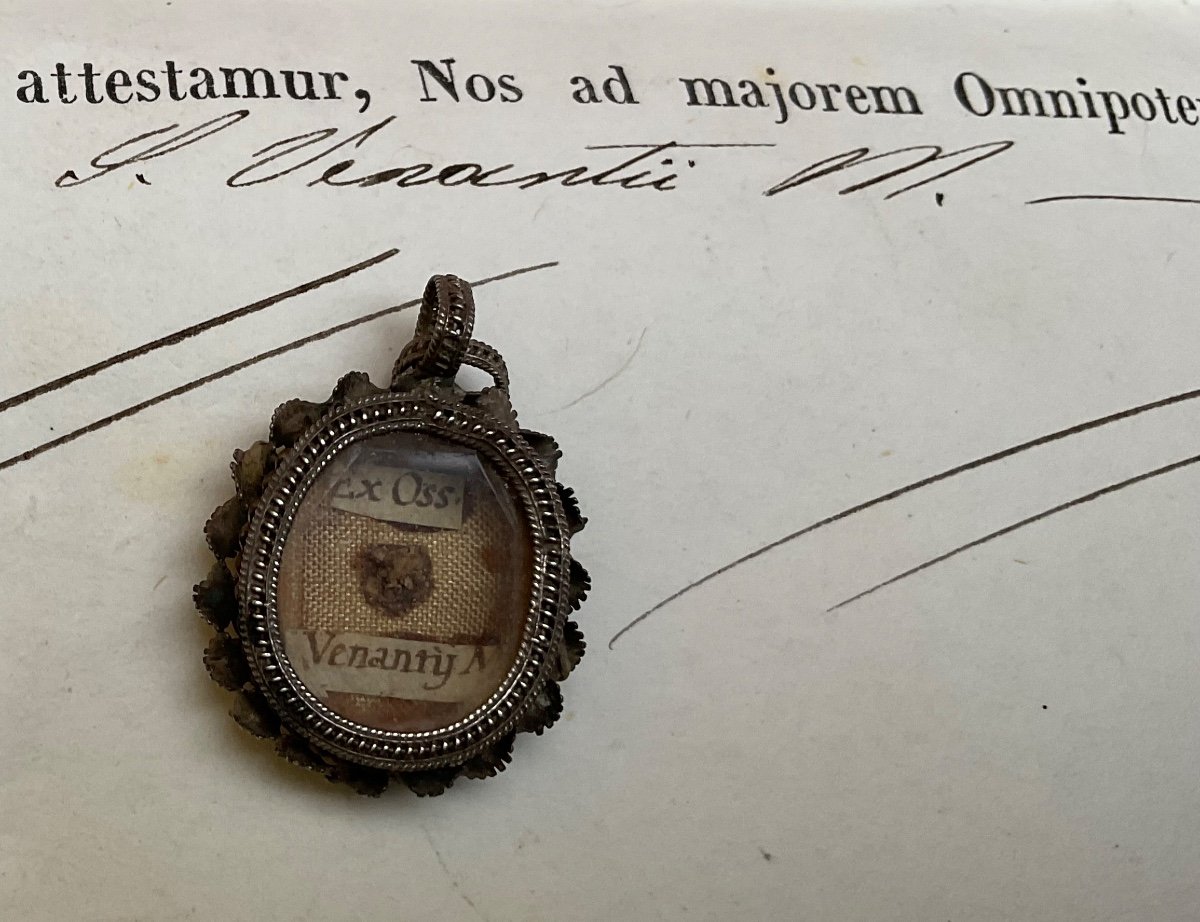 attestamur, Nos ad majorem Omnipote
S. Venantii M.
Ex Oss.
Venantij M